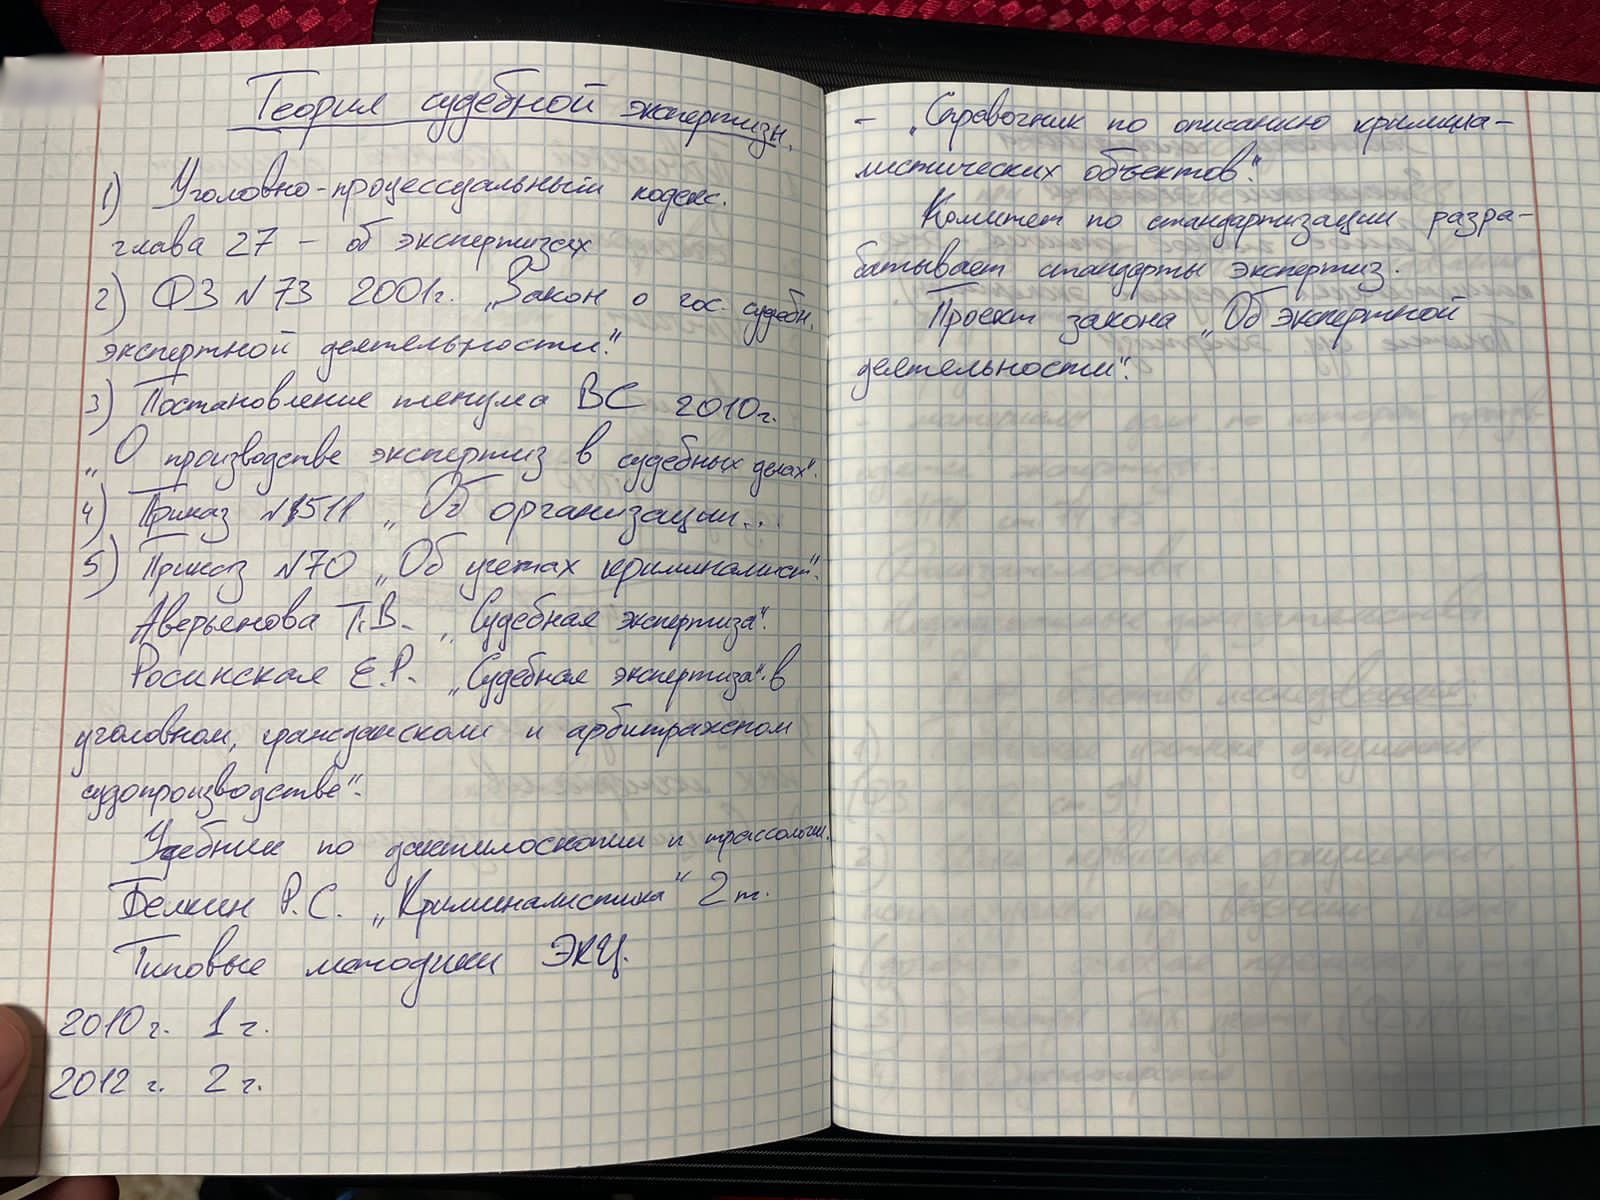 Теория судебной экспертизы.
1) Уголовно-процессуальный кодекс.
глава 27 – об экспертизах
2) ФЗ №73 2001г. „Закон о гос. судебн.
экспертной деятельности".
3) Постановление пленума ВС 2010г.
„О производстве экспертиз в судебных делах".
4) Приказ №511 „Об организации...
5) Приказ №70 „Об учетах криминалист".
Аверьенова Т.В. „Судебная экспертиза".
Росинская Е.Р. „Судебная экспертиза" в
уголовном, гражданском и арбитражном
судопроизводстве".
Учебник по дактилоскопии и трассологии.
Белкин Р.С. „Криминалистика" 2 т.
Типовые методики ЭКЦ.
2010 г. 1 г.
2012 г. 2 г.
– „Справочник по описанию кримина-
листических объектов".
Комитет по стандартизации разра-
батывает стандарты экспертиз.
Проект закона „Об экспертной
деятельности".